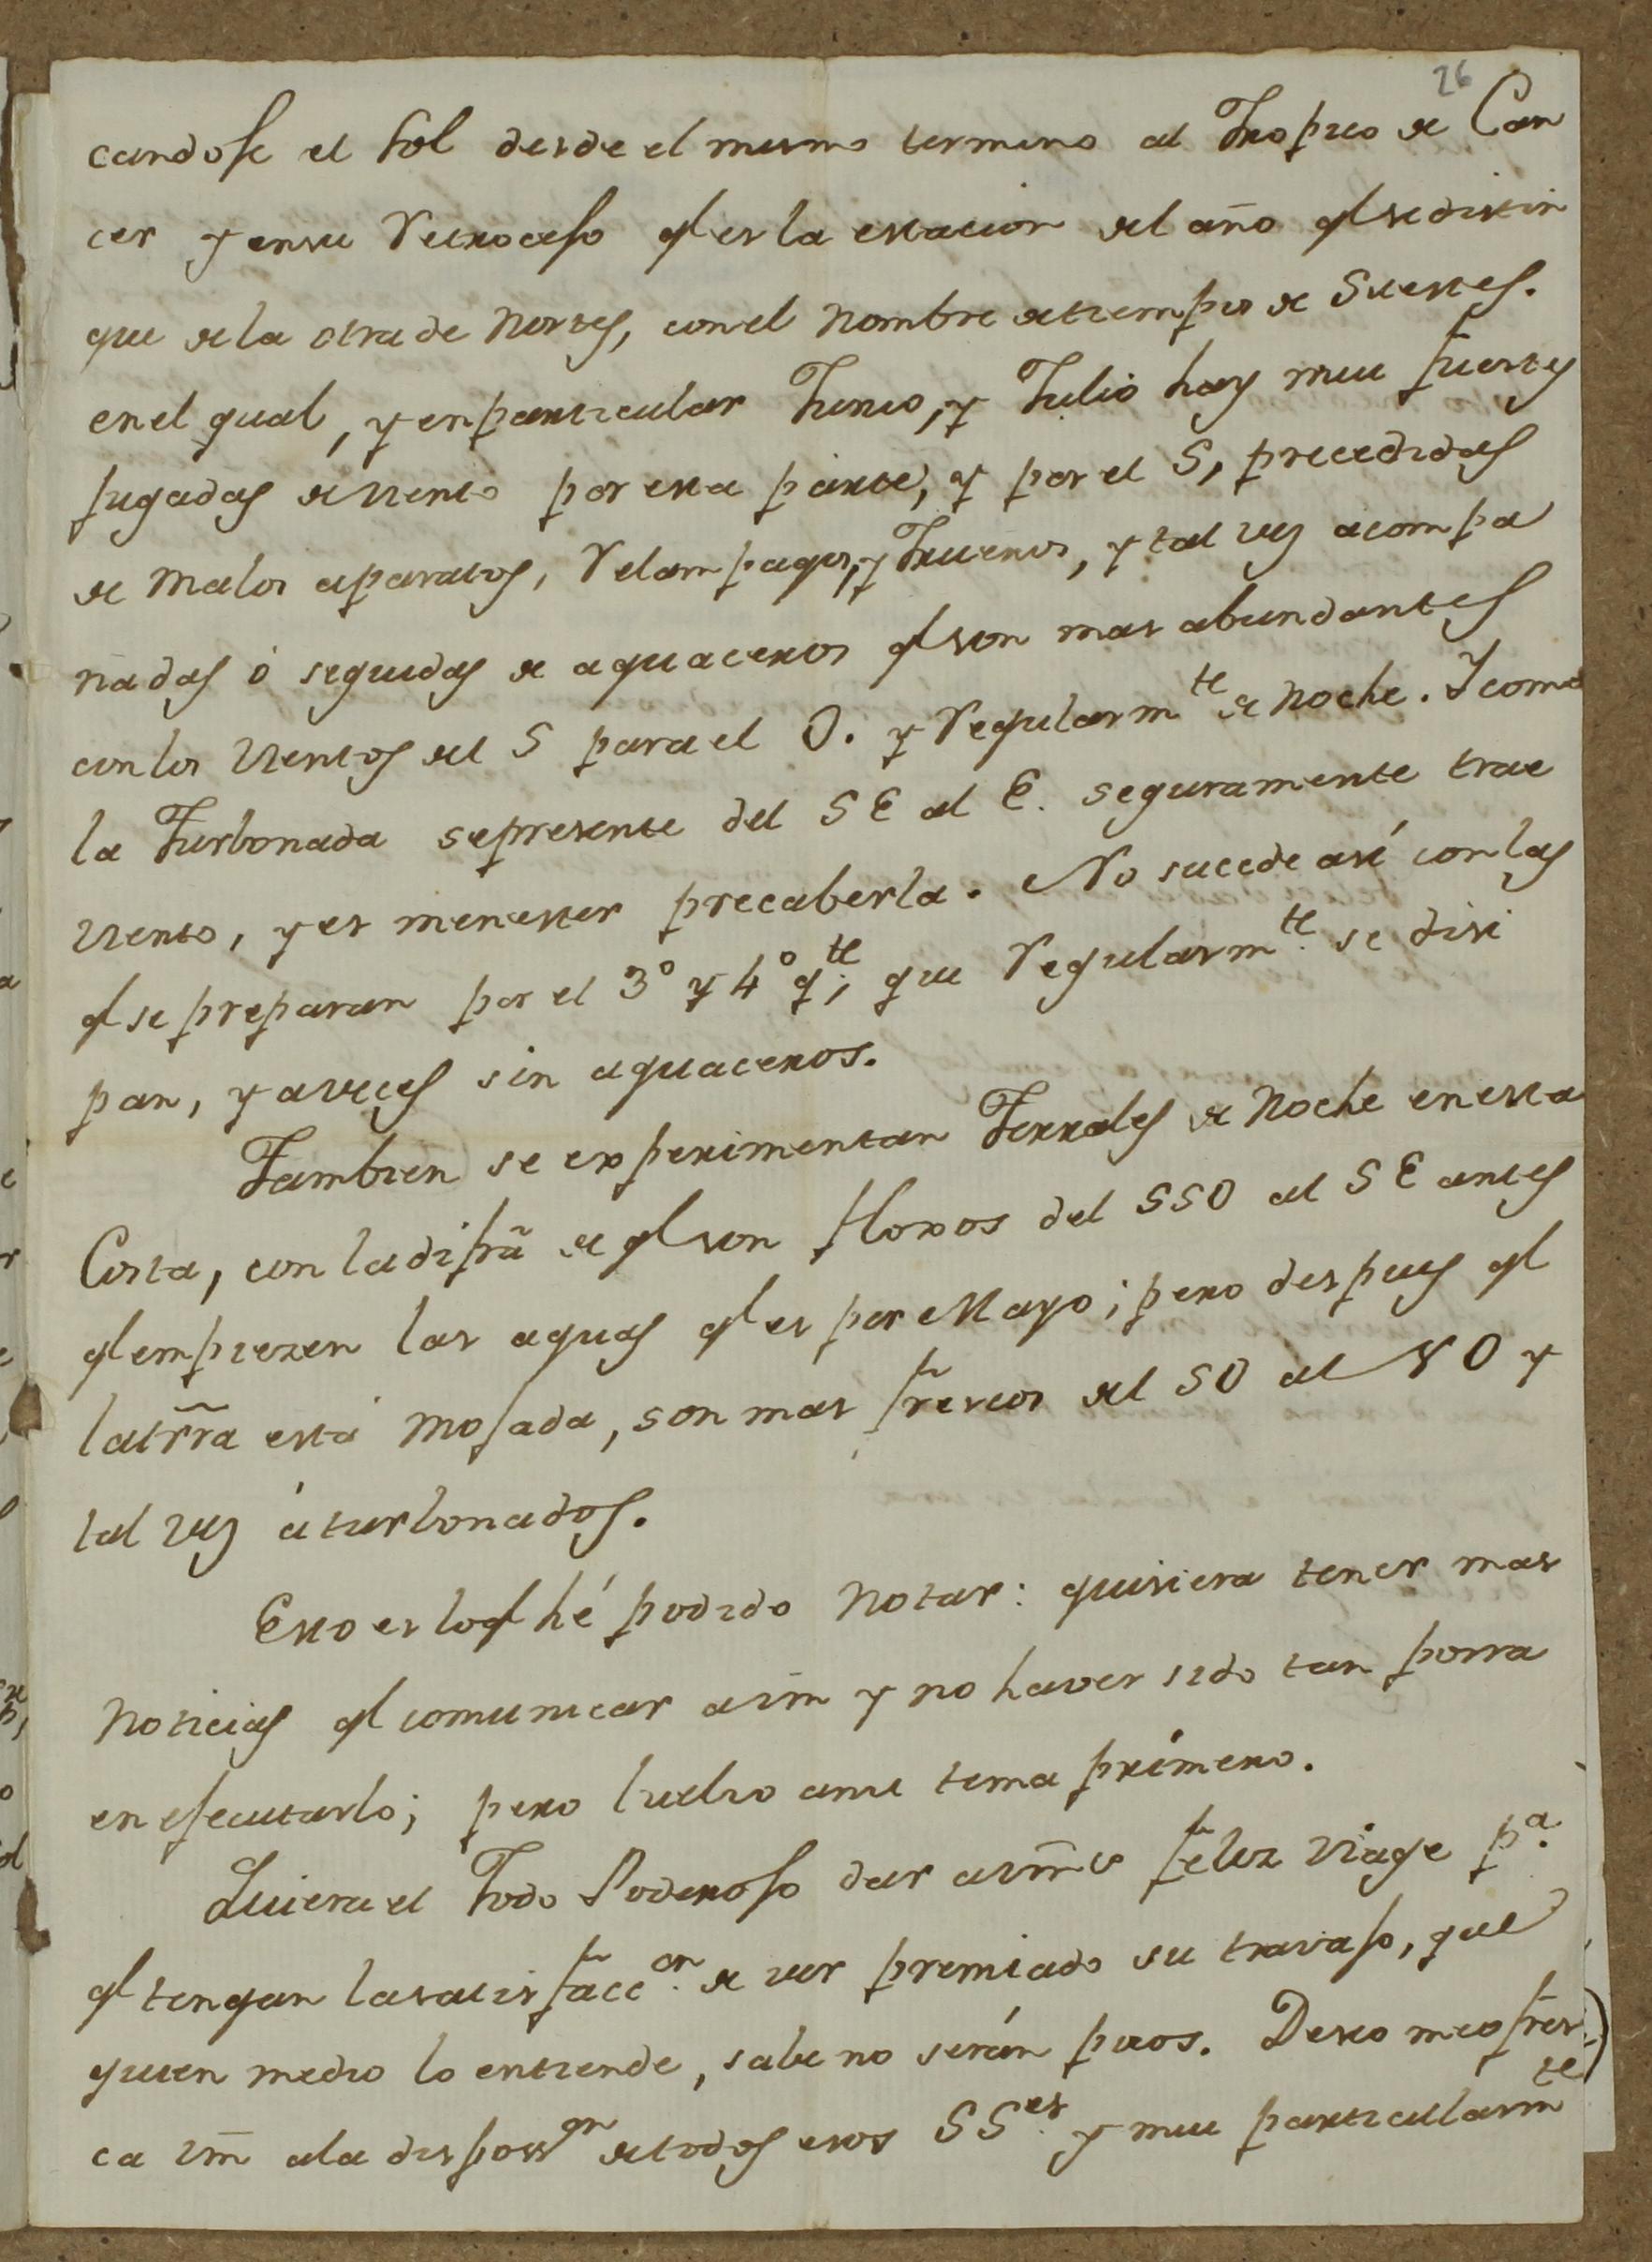 26
candose el Sol desde el mismo termino al Tropico de Can
cer y en su Retroceso q.l es la estacion del año q.l se distin
gue de la otra de Nortes, con el Nombre de tiempos de Suestes.
en el qual, y en particular Junio, y Julio hay mui fuertes
fugadas de viento por esta parte, y por el S, precedidas
de malos aparatos, Relampagos, y Truenos, y tal vez acompa
ñadas ó seguidas de aguaceros q.l son mas abundantes
con los vientos del S para el O. y Regularm.te de Noche. Y como
la Turbonada se presente del SE al E. seguramente trae
viento, y es menester precaberla. No sucede asi con las
q.l se preparan por el 3º y 4º q.te, que Regularm.te se disi
pan, y a veces sin aguaceros.
Tambien se experimentan Terrales de Noche en esta
Costa, con la difrã de q.l son floxos del SSO al SE antes
q.l empiezen las aguas q.l es por Mayo; pero despues q.l
la trr̃a está mojada, son mas frescos del SO al NO y
tal vez áturbonados.
Esto es lo q.l hé podido Notar: quisiera tener mas
Noticias q.l comunicar a vm̃ y no haver sido tan porra
en ejecutarlo; pero buelvo a mi tema primero.
Quiera el Todo Poderoso dar a vm̃s feliz viage p.a
q.l tengan la satisfacc.on de ver premiado su travajo, que
quien medio lo entiende, sabe no serán pocos. Deseo me ofrez
ca vm̃ a la dispos.on de todos esos SS.es y mui particularm.te